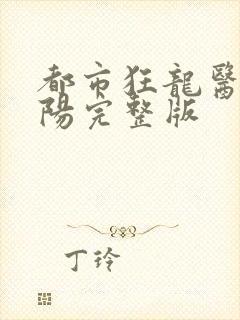 都市狂龍醫
陽完整版
丁玲